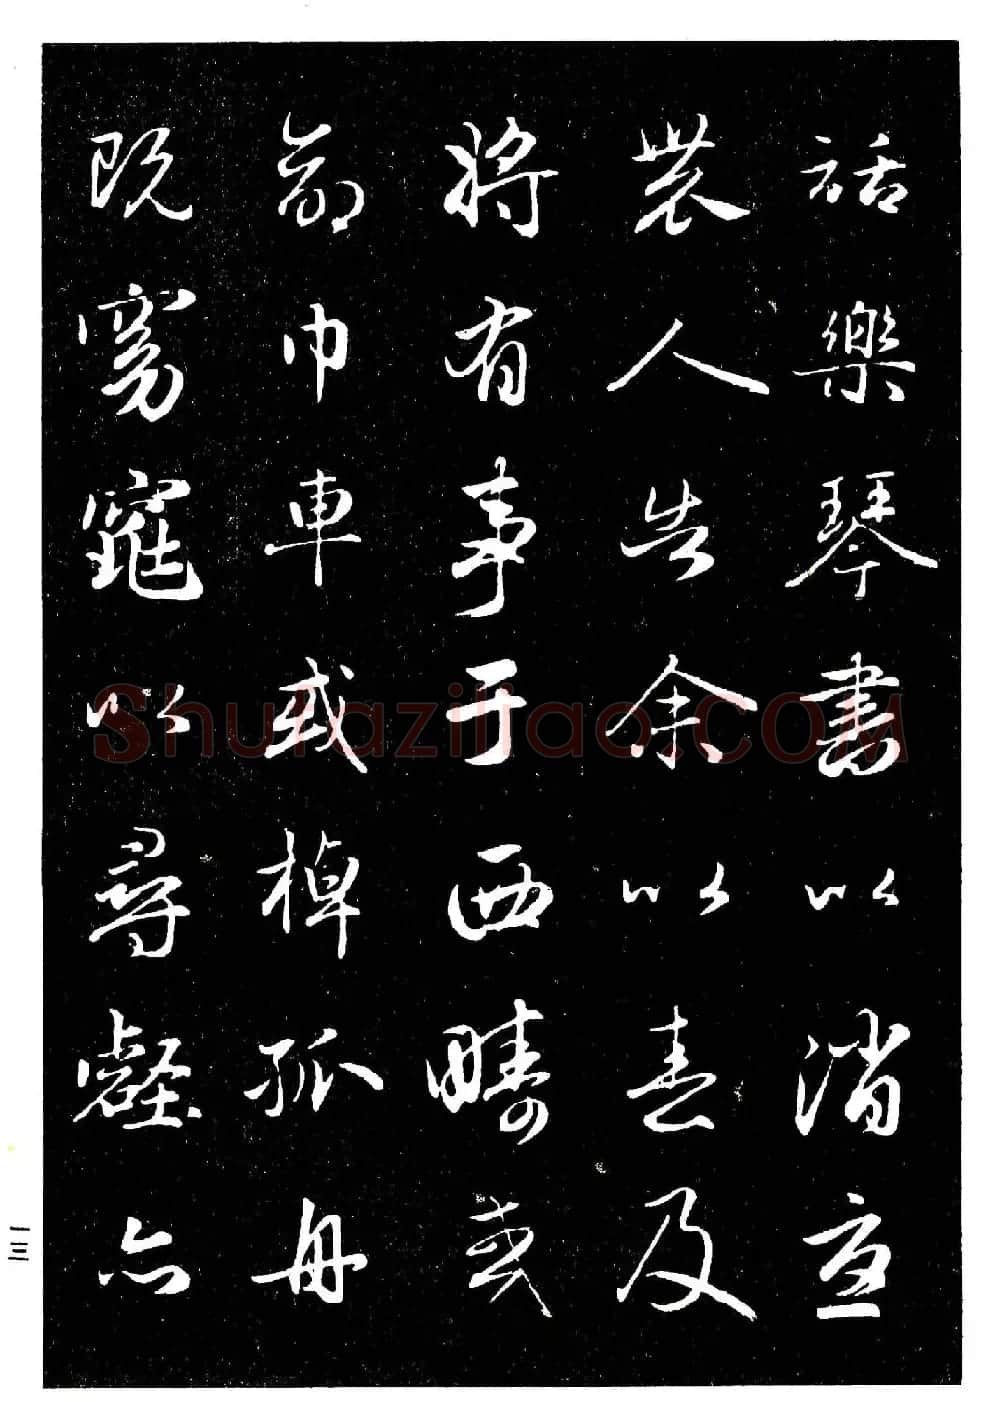 話樂琴書以消憂
農人告余以春及
將有事于西疇或
命巾車或棹孤舟
既窈窕以尋壑亦
一三
Shufaziliao.COM